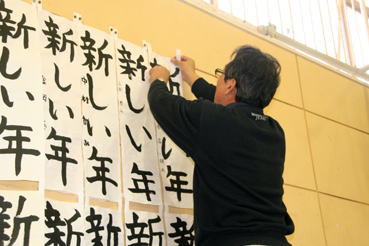 新しい年
新しい年
新しい年
新しい年
新しい年
新
新
新
新